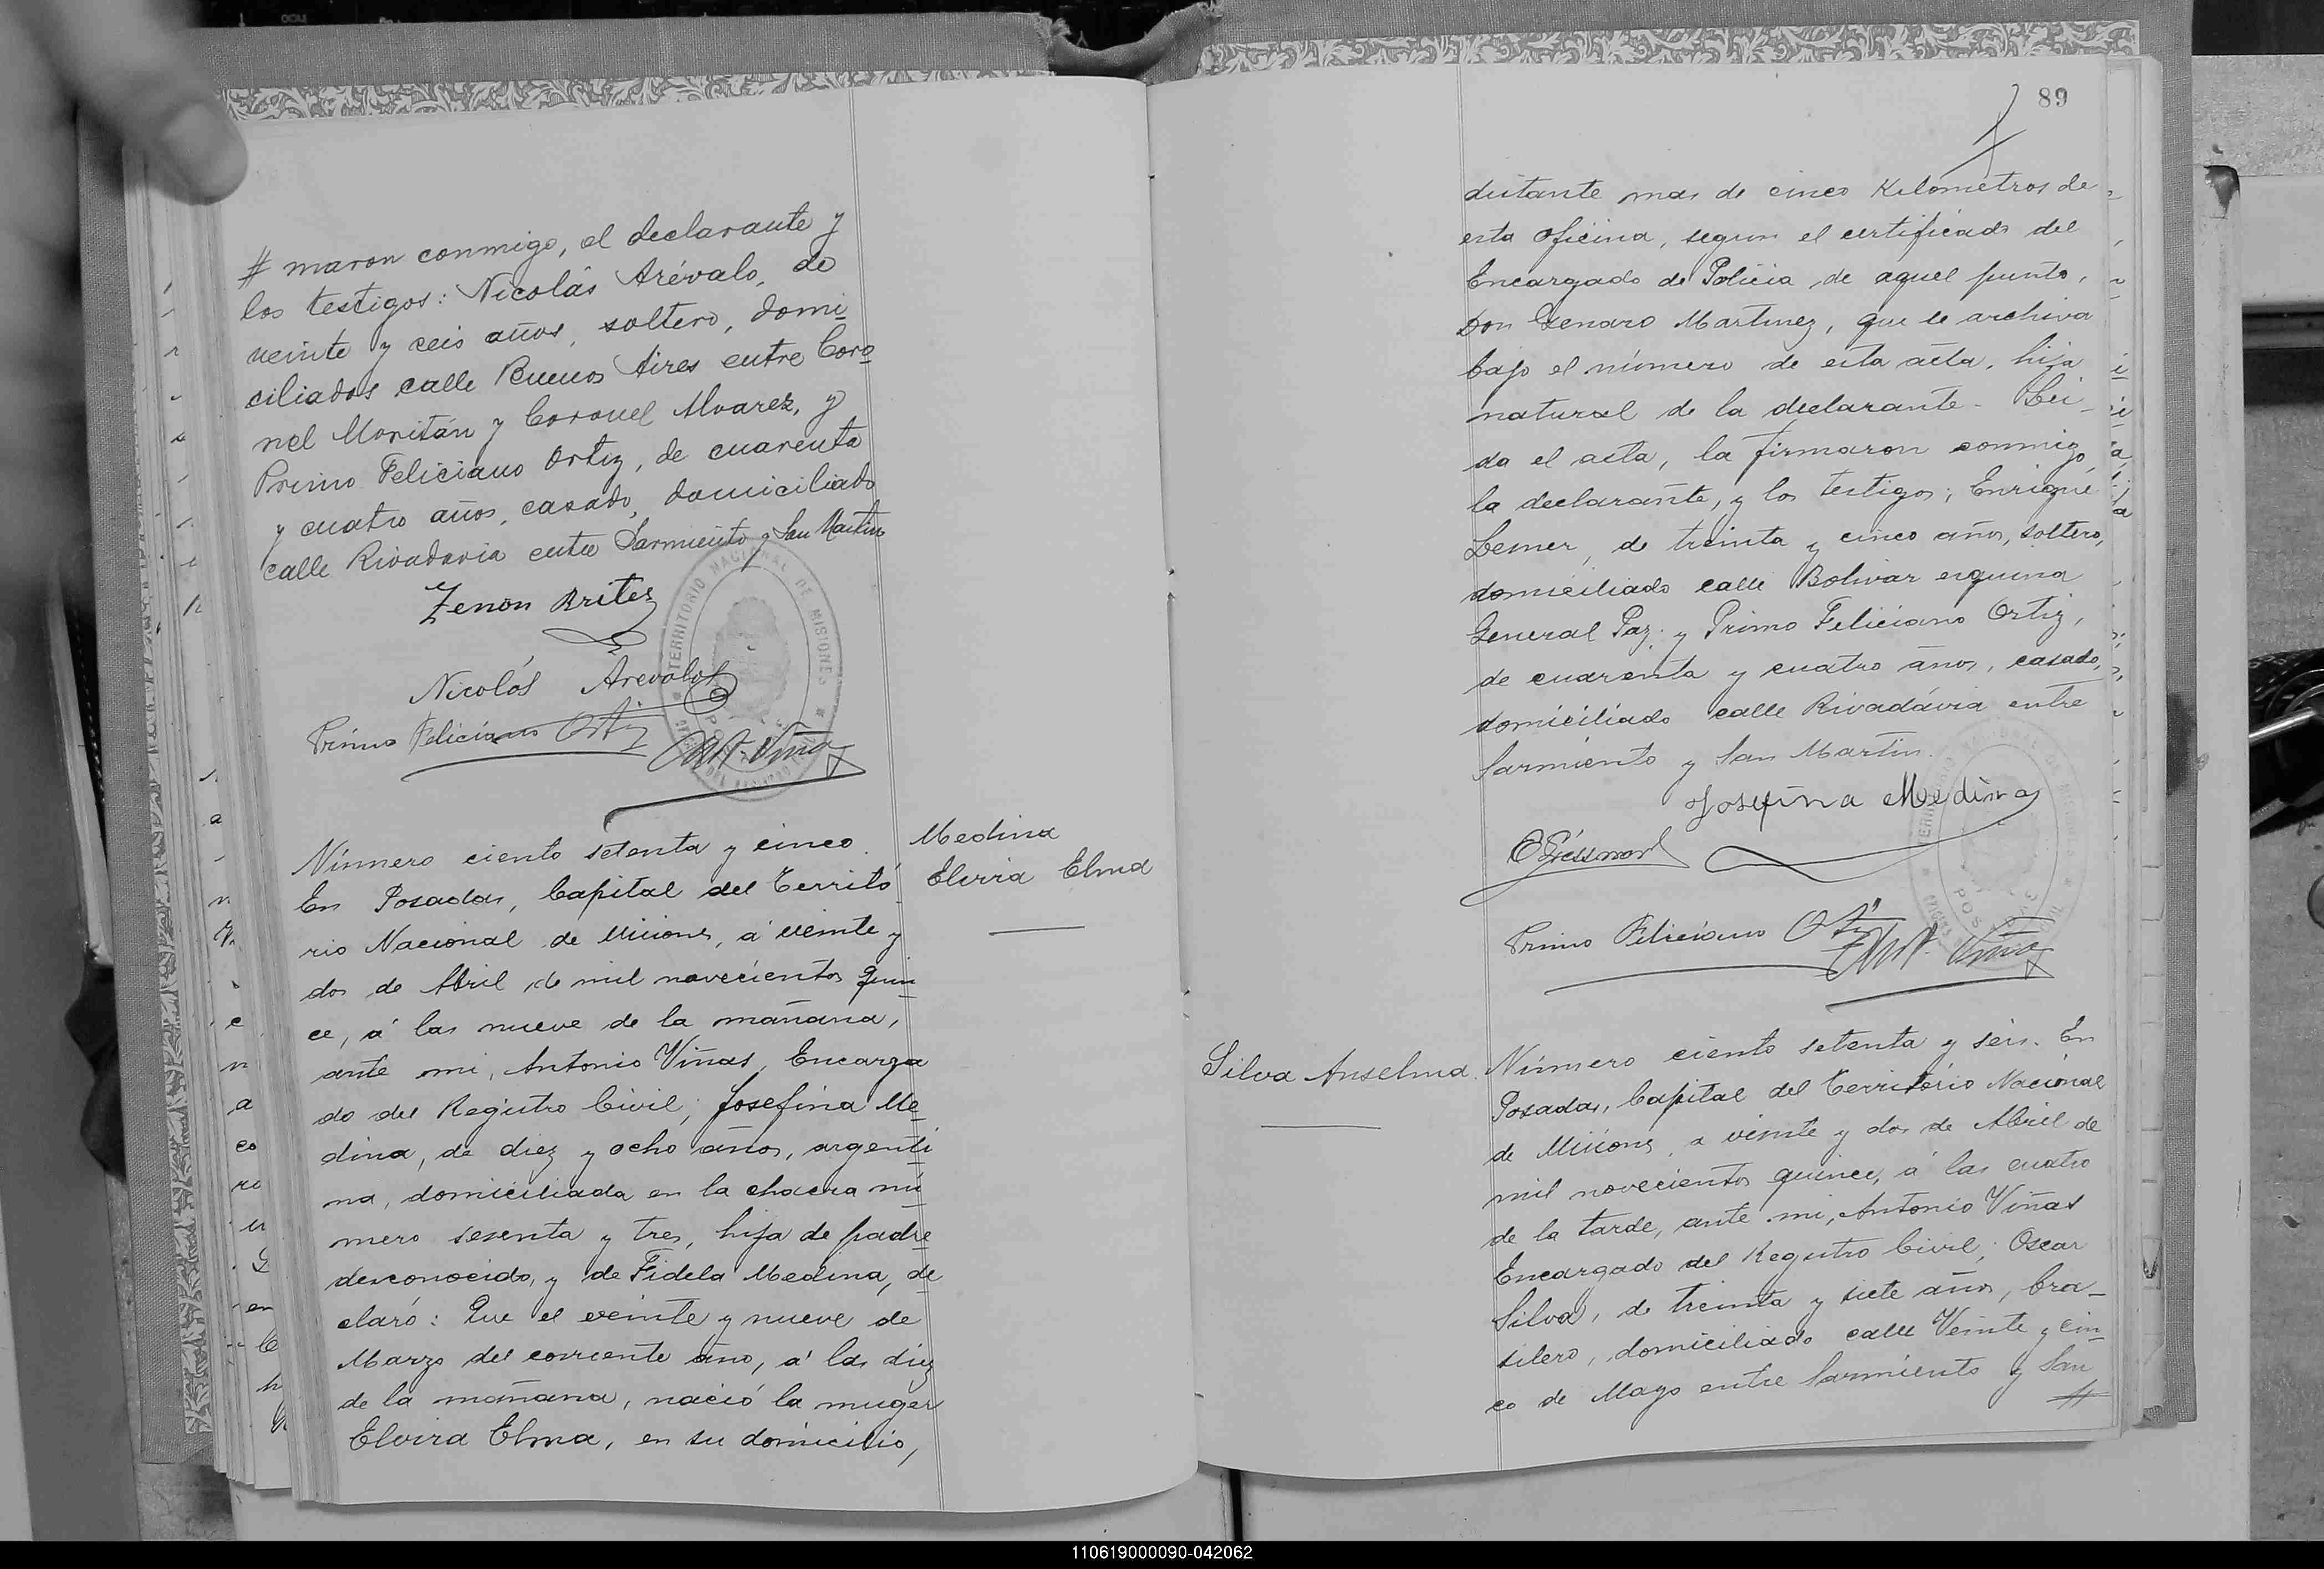 # maron conmigo, el declarante y
los testigos: Nicolás Arévalo, de
veinte y ceis años, soltero, domi
ciliados calle Buenos Aires entre Coro
nel Moritán y Coronel Alvarez, y
Primo Feliciano Ortiz, de cuarenta
y cuatro años, casado, domiciliado
calle Rivadavia entre Sarmiento y San Martin
Zenon Britez
Nicolás Arevalo
Primo Feliciano Ortiz
Ant. Viñas
TERRITORIO NACIONAL DE MISIONES
Medina
Elvira Elma
Número ciento setenta y cinco.
En Posadas, Capital del Territó
rio Nacional de Misiones, á veinte y
dos de Abril de mil novecientos quin
ce, á las nueve de la mañana,
ante mi, Antonio Viñas, Encarga
do del Registro Civil; Josefina Me
dina, de diez y ocho años, argenti
na, domiciliada en la chacra nú
mero sesenta y tres, hija de padre
desconocido, y de Fidela Medina, de
claró: Que el veinte y nueve de
Marzo del corriente año, á las diez
de la mañana, nació la muger
Elvira Elma, en su domicilio,
89
distante mas de cinco Kilometros de
esta oficina, segun el certificado del
Encargado de Policia de aquel punto,
Don Genaro Martinez, que se archiva
bajo el número de esta acta, hija
natural de la declarante. Lei
da el acta, la firmaron conmigo,
la declarante, y los testigos; Enrique
de treinta y cinco años, soltero,
domiciliado calle Bolivar esquina
General Paz; y Primo Feliciano Ortiz,
de cuarenta y cuatro años, casado,
domiciliado calle Rivadávia entre
Sarmiento y San Martin.
Josefina Medina
Primo Feliciano Ortiz
Ant. Viñas
Silva Anselma.
Número ciento setenta y seis. En
Posadas, Capital del Território Nacional
de Misiones, a veinte y dos de Abril de
mil novecientos quince, á las cuatro
de la tarde, ante mi, Antonio Viñas
Encargado del Registro Civil; Oscar
Silva, de treinta y siete años, bra-
silero, domiciliado calle Veinte y cin
co de Mayo entre Sarmiento y San
#
110619000090-042062